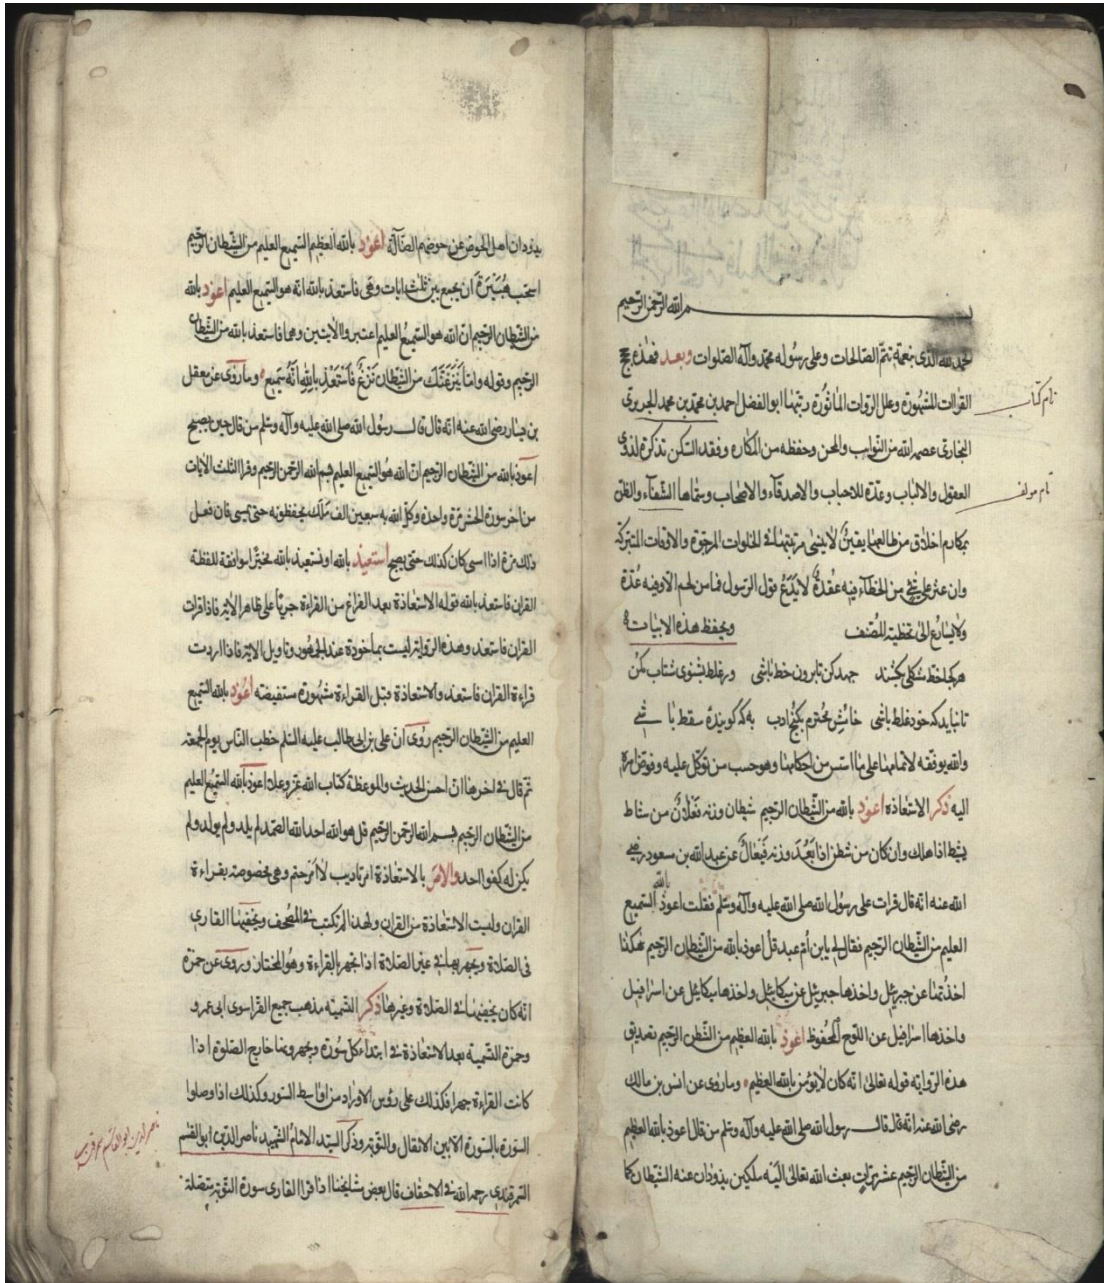 بسم الله الرحمن الرحیم
الحمد لله الذی بنعمته تتم الصالحات وعلی رسوله محمد وآله الصلوات وبعد فهذه حجج
القراآت المشهورة وعلل الروات الماثورة رتبها ابو الفضل احمد بن محمد بن محمد الجریری
نام کتاب
البخاری عصمه الله من النوایب والمحن وحفظه من المکاره وفقد السکن تذکرة لذوی
العقول والالباب وعدة للاحباب والاصدقآء والاصحاب وسماها الشفآء والظن
نام مولف
بمکارم اخلاق من طالعها یقین لاینسی مرتبها فی الخلوات المرجوة والاوقات المتبرکة
وان عثر علی شئ من الخطآء فیه عقدة لایدع قول الرسول فما من لحم الا وفیه غدة
ولایسارع الی تخطیة المصنف ویحفظ هذه الابیات
هرکجا لفظ مشکلی بینند جهد کن تا برون خط باشی ور غلط بشنوی شتاب مکن
تا نباید که خود غلط باشی خامش محترم بکنج ادب به که کوینده سقط باشی
والله یوفقه لاتمامها علی ما اسس من احکامها وهو حسب من توکل علیه وفوض امره
الیه ذکر الاستعاذة اعوذ بالله من الشیطان الرجیم شیطان وزنه فعلان من شاط
یشیط اذا هلك وان کان من شطن اذا بعد وزنه فیعال عن عبد الله بن سعود رضی
الله عنه انه قال قرات علی رسول الله صلی الله علیه وآله وسلم فقلت اعوذ بالله السمیع
العلیم من الشیطان الرجیم فقال لی یا بن ام عبد قل اعوذ بالله من الشیطان الرجیم هکذا
اخذتها عن جبریل واخذها جبریل عن میکایل واخذها میکایل عن اسرافیل
واخذها اسرافیل عن اللوح المحفوظ اعوذ بالله العظیم من الشطن الرجیم تصدیق
هذه الروایة قوله تعالی انه کان لایؤمن بالله العظیم وما روی عن انس بن مالك
رضی الله عنه انه قال قال رسول الله صلی الله علیه وآله وسلم من قال اعوذ بالله العظیم
من الشیطان الرجیم عشر مرات بعث الله تعالی الیه ملکین یذودان عنه الشیطان کما
یذودان اهل الحوض عن حوضهم الضآلة اعوذ بالله العظیم السمیع العلیم من الشیطان الرجیم
استحب هبیرة ان یجمع بین ثلث ایات وهی فاستعذ بالله انه هو السمیع العلیم اعوذ بالله
من الشیطان الرجیم ان الله هو السمیع العلیم اعتبروا الایتین وهما فاستعذ بالله من الشیطان
الرجیم وقوله واما ینزغنك من الشیطان نزغ فاستعذ بالله انه سمیع وما روی عن معقل
بن یسار رضی الله عنه انه قال قال رسول الله صلی الله علیه وآله وسلم من قال حین یصبح
اعوذ بالله من الشیطان الرجیم ان الله هو السمیع العلیم بسم الله الرحمن الرحیم وقرا الثلث الایات
من اخر سورة الحشر مرة واحدة وکل الله به سبعین الف ملك یحفظونه حتی یمسی فان فعل
ذلك مرة اذا امسی کان کذلك حتی یصبح استعیذ بالله او نستعیذ بالله نحیز الموافقة للفظة
القران فاستعذ بالله قوله الاستعاذة بعد الفراغ من القراءة جریا علی ظاهر الایة فاذا قرات
القران فاستعذ وهذه الروایة لیست بماخوذة عند الجمهور وتاویل الایة فاذا اردت
قراءة القران فاستعذ والاستعاذة قبل القراءة مشهورة مستفیضة اعوذ بالله السمیع
العلیم من الشیطان الرجیم روی ان علی بن ابی طالب علیه السلم خطب الناس یوم الجمعة
ثم قال فی اخرها ان احسن الحدیث والموعظة کتاب الله عز وعلا اعوذ بالله السمیع العلیم
من الشیطان الرجیم بسم الله الرحمن الرحیم قل هو الله احد الله الصمد لم یلد ولم یولد ولم
یکن له کفوا احد والامر بالاستعاذة امر تادیب لا امر حتم وهی مخصوصة بقراءة
القران ولیست الاستعاذة من القران ولهذا لم تکتب فی المصحف ویخفیها القاری
فی الصلاة ویجهر بها فی غیر الصلاة اذا جهر بالقراءة وهو المختار وروی عن حمزة
انه کان یخفیها فی الصلاة وغیرها ذکر التسمیة مذهب جمیع القرا سوی ابی عمرو
وحمزة التسمیة بعد الاستعاذة فی ابتداء کل سورة ویجهرونها خارج الصلوة اذا
کانت القراءة جهرا فکذلك علی رؤس الاوراد من اواسط السور وکذلك اذا وصلوا
السورة بالسورة الا بین الانفال والتوبة وذکر السید الامام الشهید ناصر الدین ابو القسم
السمرقندی رحمه الله فی الاحقاف قال بعض مشایخنا اذا قرا القاری سورة التوبة متصلة